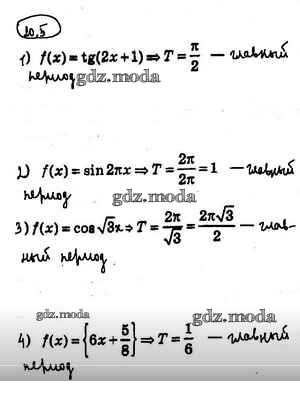 20.5
1) f(x) = tg(2x + 1) ⇒ T = π/2 — главный
период gdz.moda
2) f(x) = sin 2πx ⇒ T = 2π/2π = 1 — главный
период
gdz.moda
3) f(x) = cos √3x ⇒ T = 2π/√3 = 2π√3/2 — глав-
ный период
gdz.moda gdz.moda
4) f(x) = {6x + 5/8} ⇒ T = 1/6 — главный
период